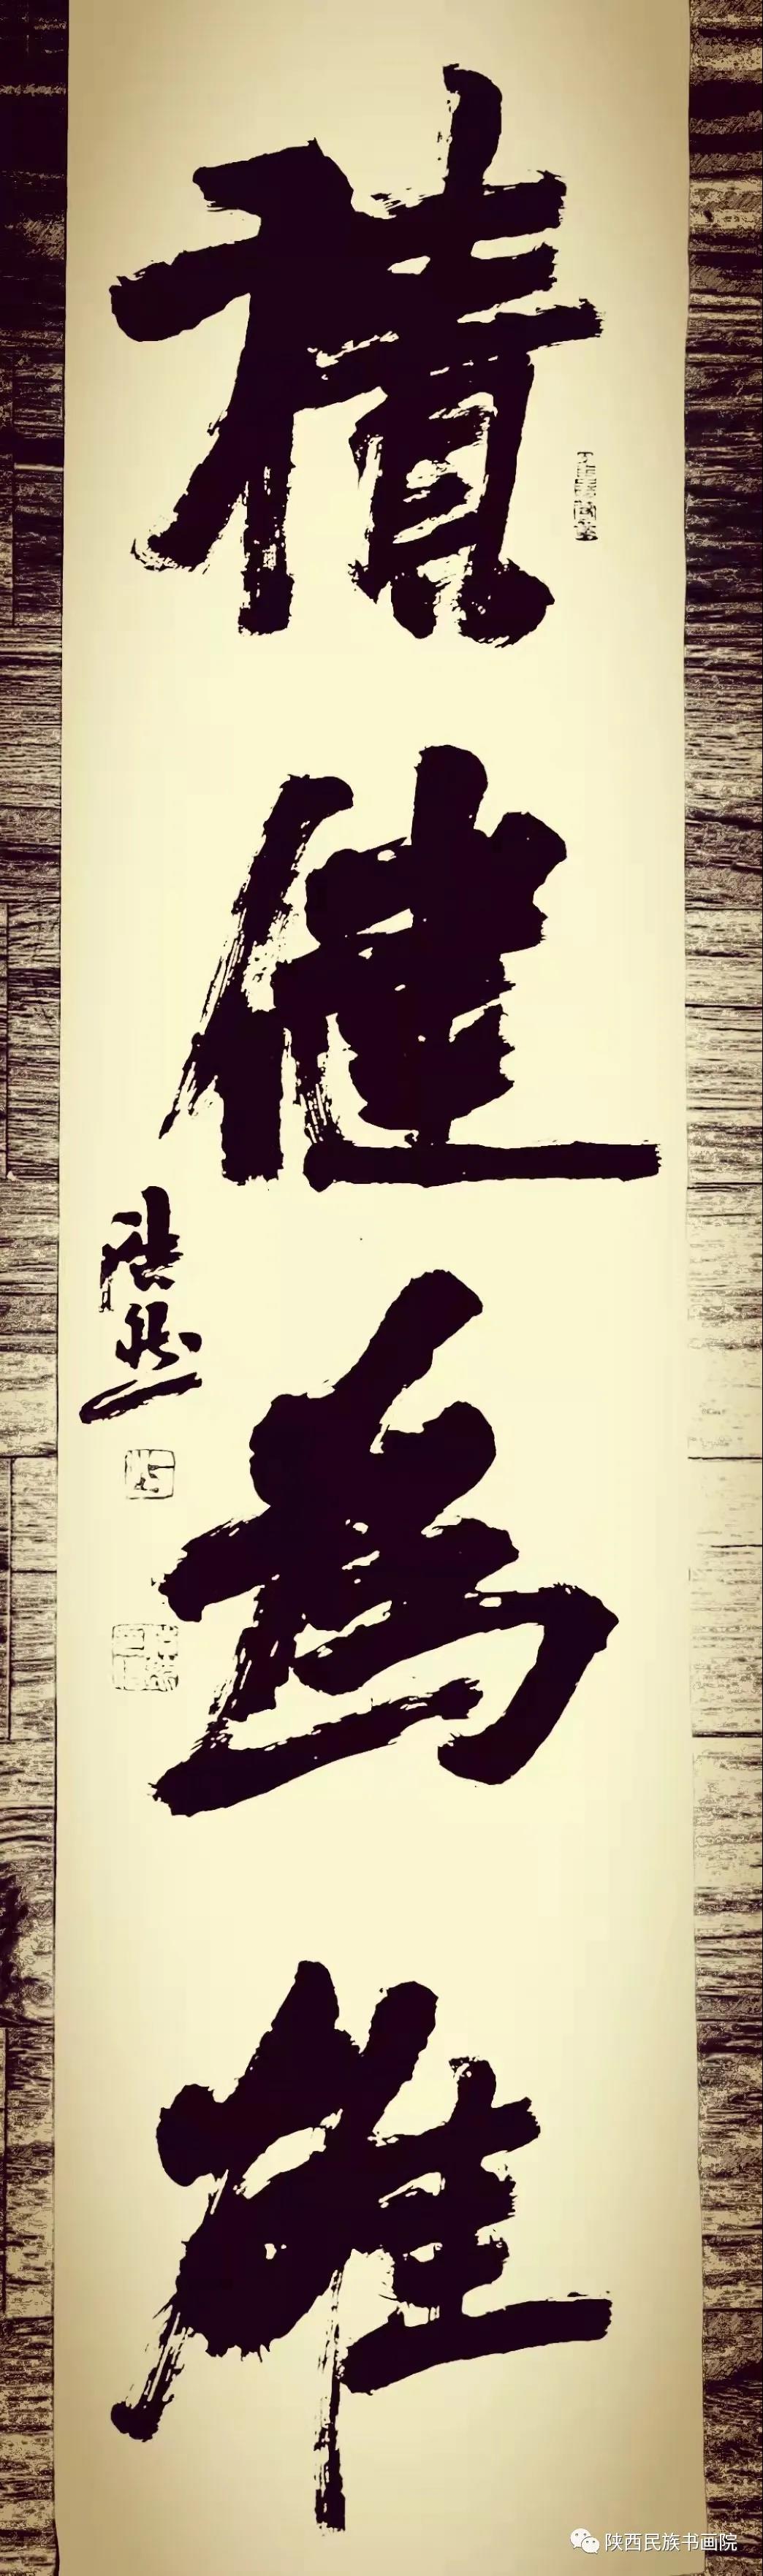 積健為雄
陕西民族书画院